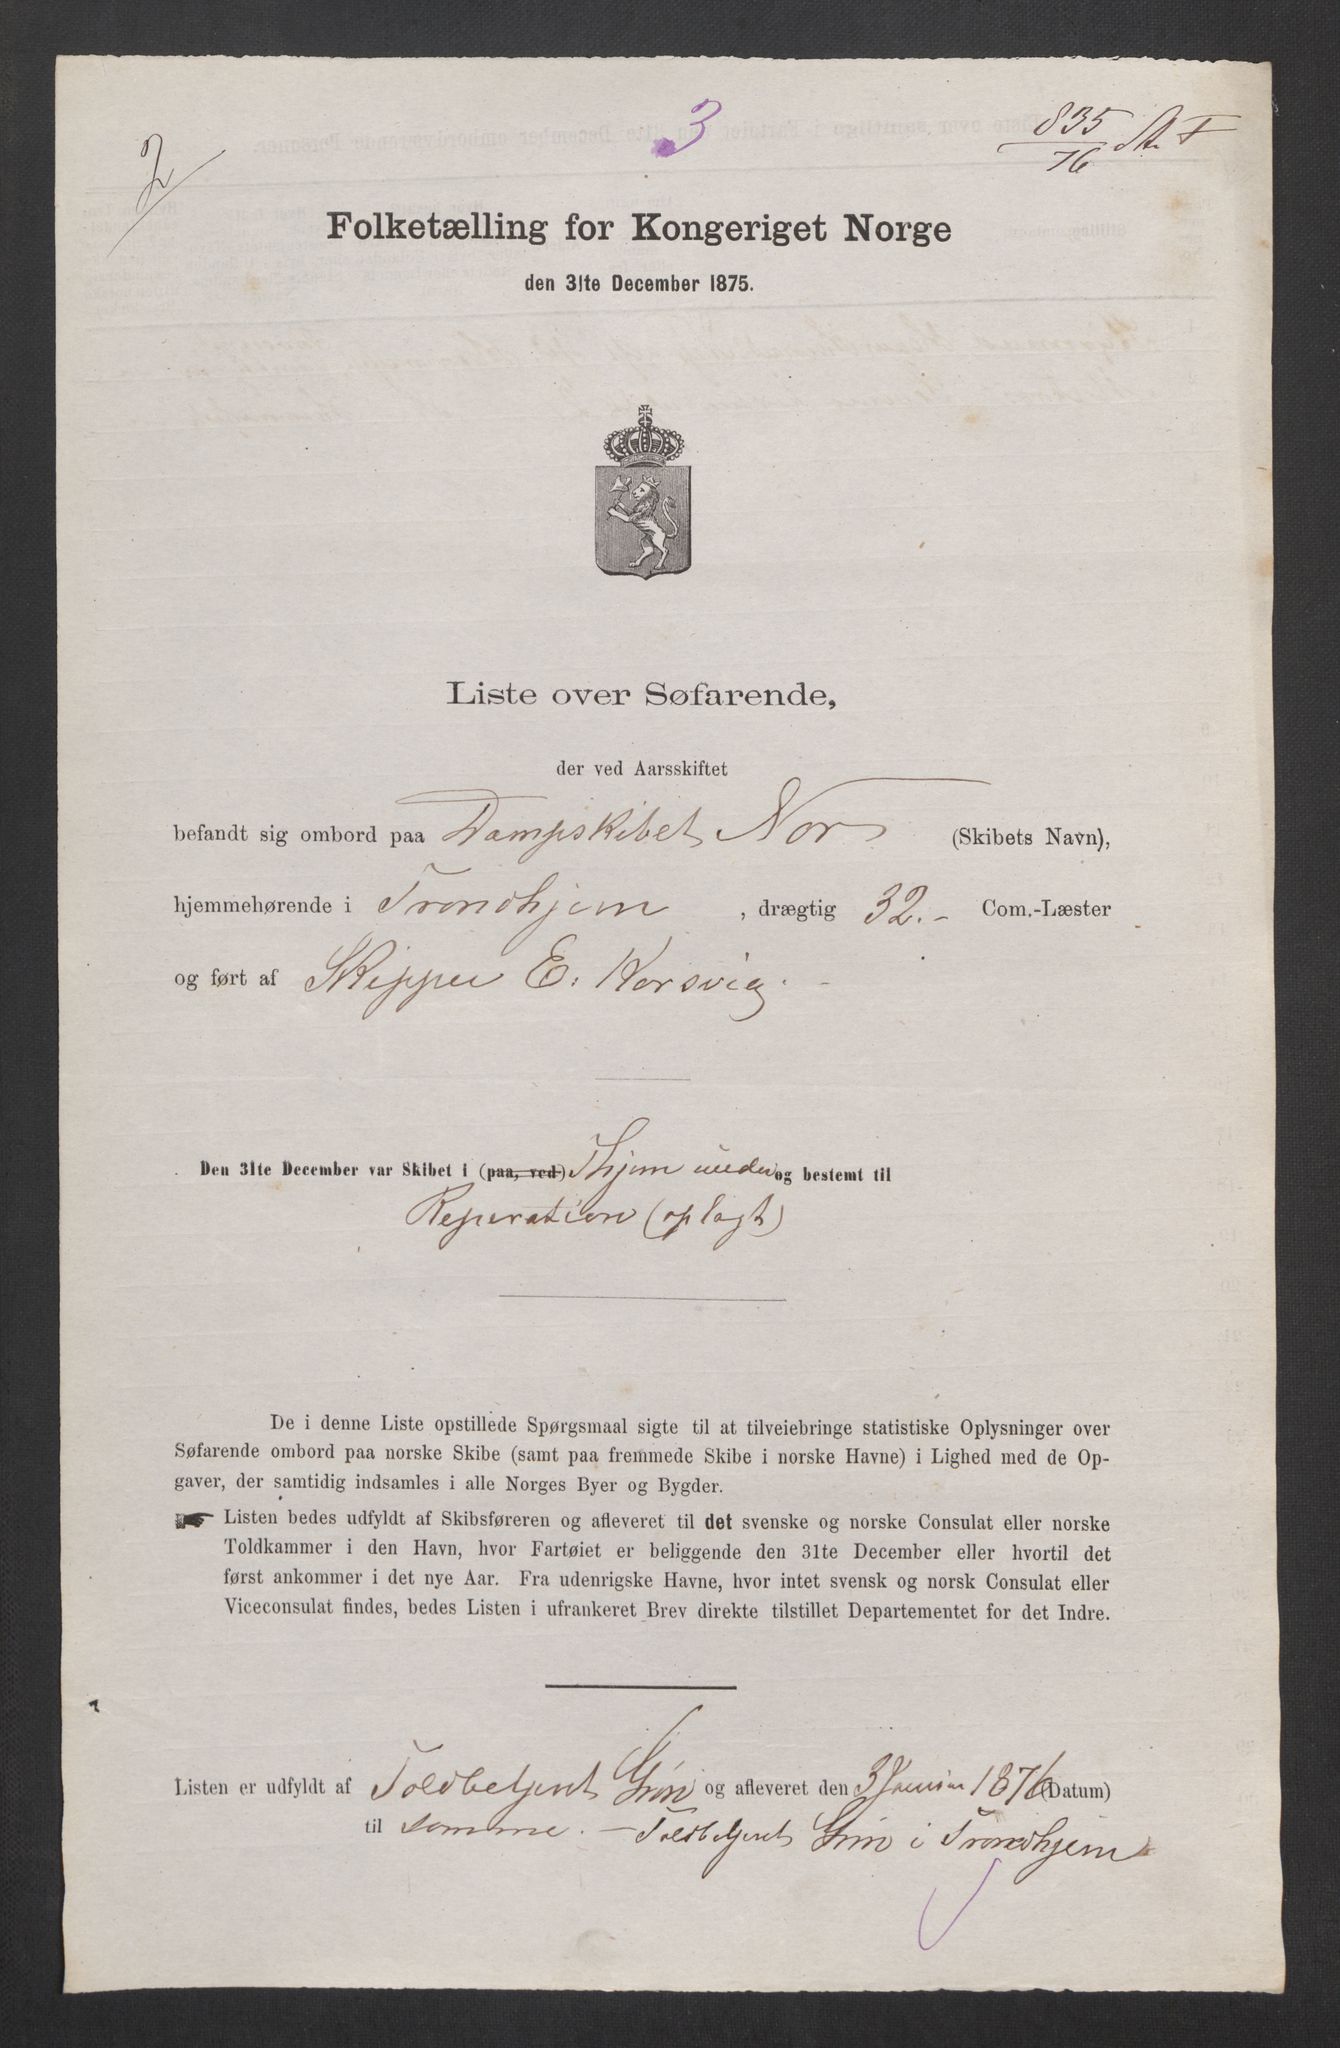 2
3
835
76
Folketælling for Kongeriget Norge
den 31te December 1875.
Liste over Søfarende,
der ved Aarsskiftet
befandt sig ombord paa Dampskibet Nor (Skibets Navn),
hjemmehørende i Trondhjem, drægtig 32.- Com.-Læster
og ført af Skipper E. Korsvig.
Den 31te December var Skibet i (paa, ved) Thjem under og bestemt til
Reperation (oplagt)
De i denne Liste opstillede Spørgsmaal sigte til at tilveiebringe statistiske Oplysninger over
Søfarende ombord paa norske Skibe (samt paa fremmede Skibe i norske Havne) i Lighed med de Op-
gaver, der samtidig indsamles i alle Norges Byer og Bygder.
Listen bedes udfyldt af Skibsføreren og afleveret til det svenske og norske Consulat eller norske
Toldkammer i den Havn, hvor Fartøiet er beliggende den 31te December eller hvortil det
først ankommer i det nye Aar. Fra udenrigske Havne, hvor intet svensk og norsk Consulat eller
Viceconsulat findes, bedes Listen i ufrankeret Brev direkte tilstillet Departementet for det Indre.
Listen er udfyldt af Toldbetjent og afleveret den 3 Januar 1876 (Datum)
til samme. - Toldbetjent i Trondhjem